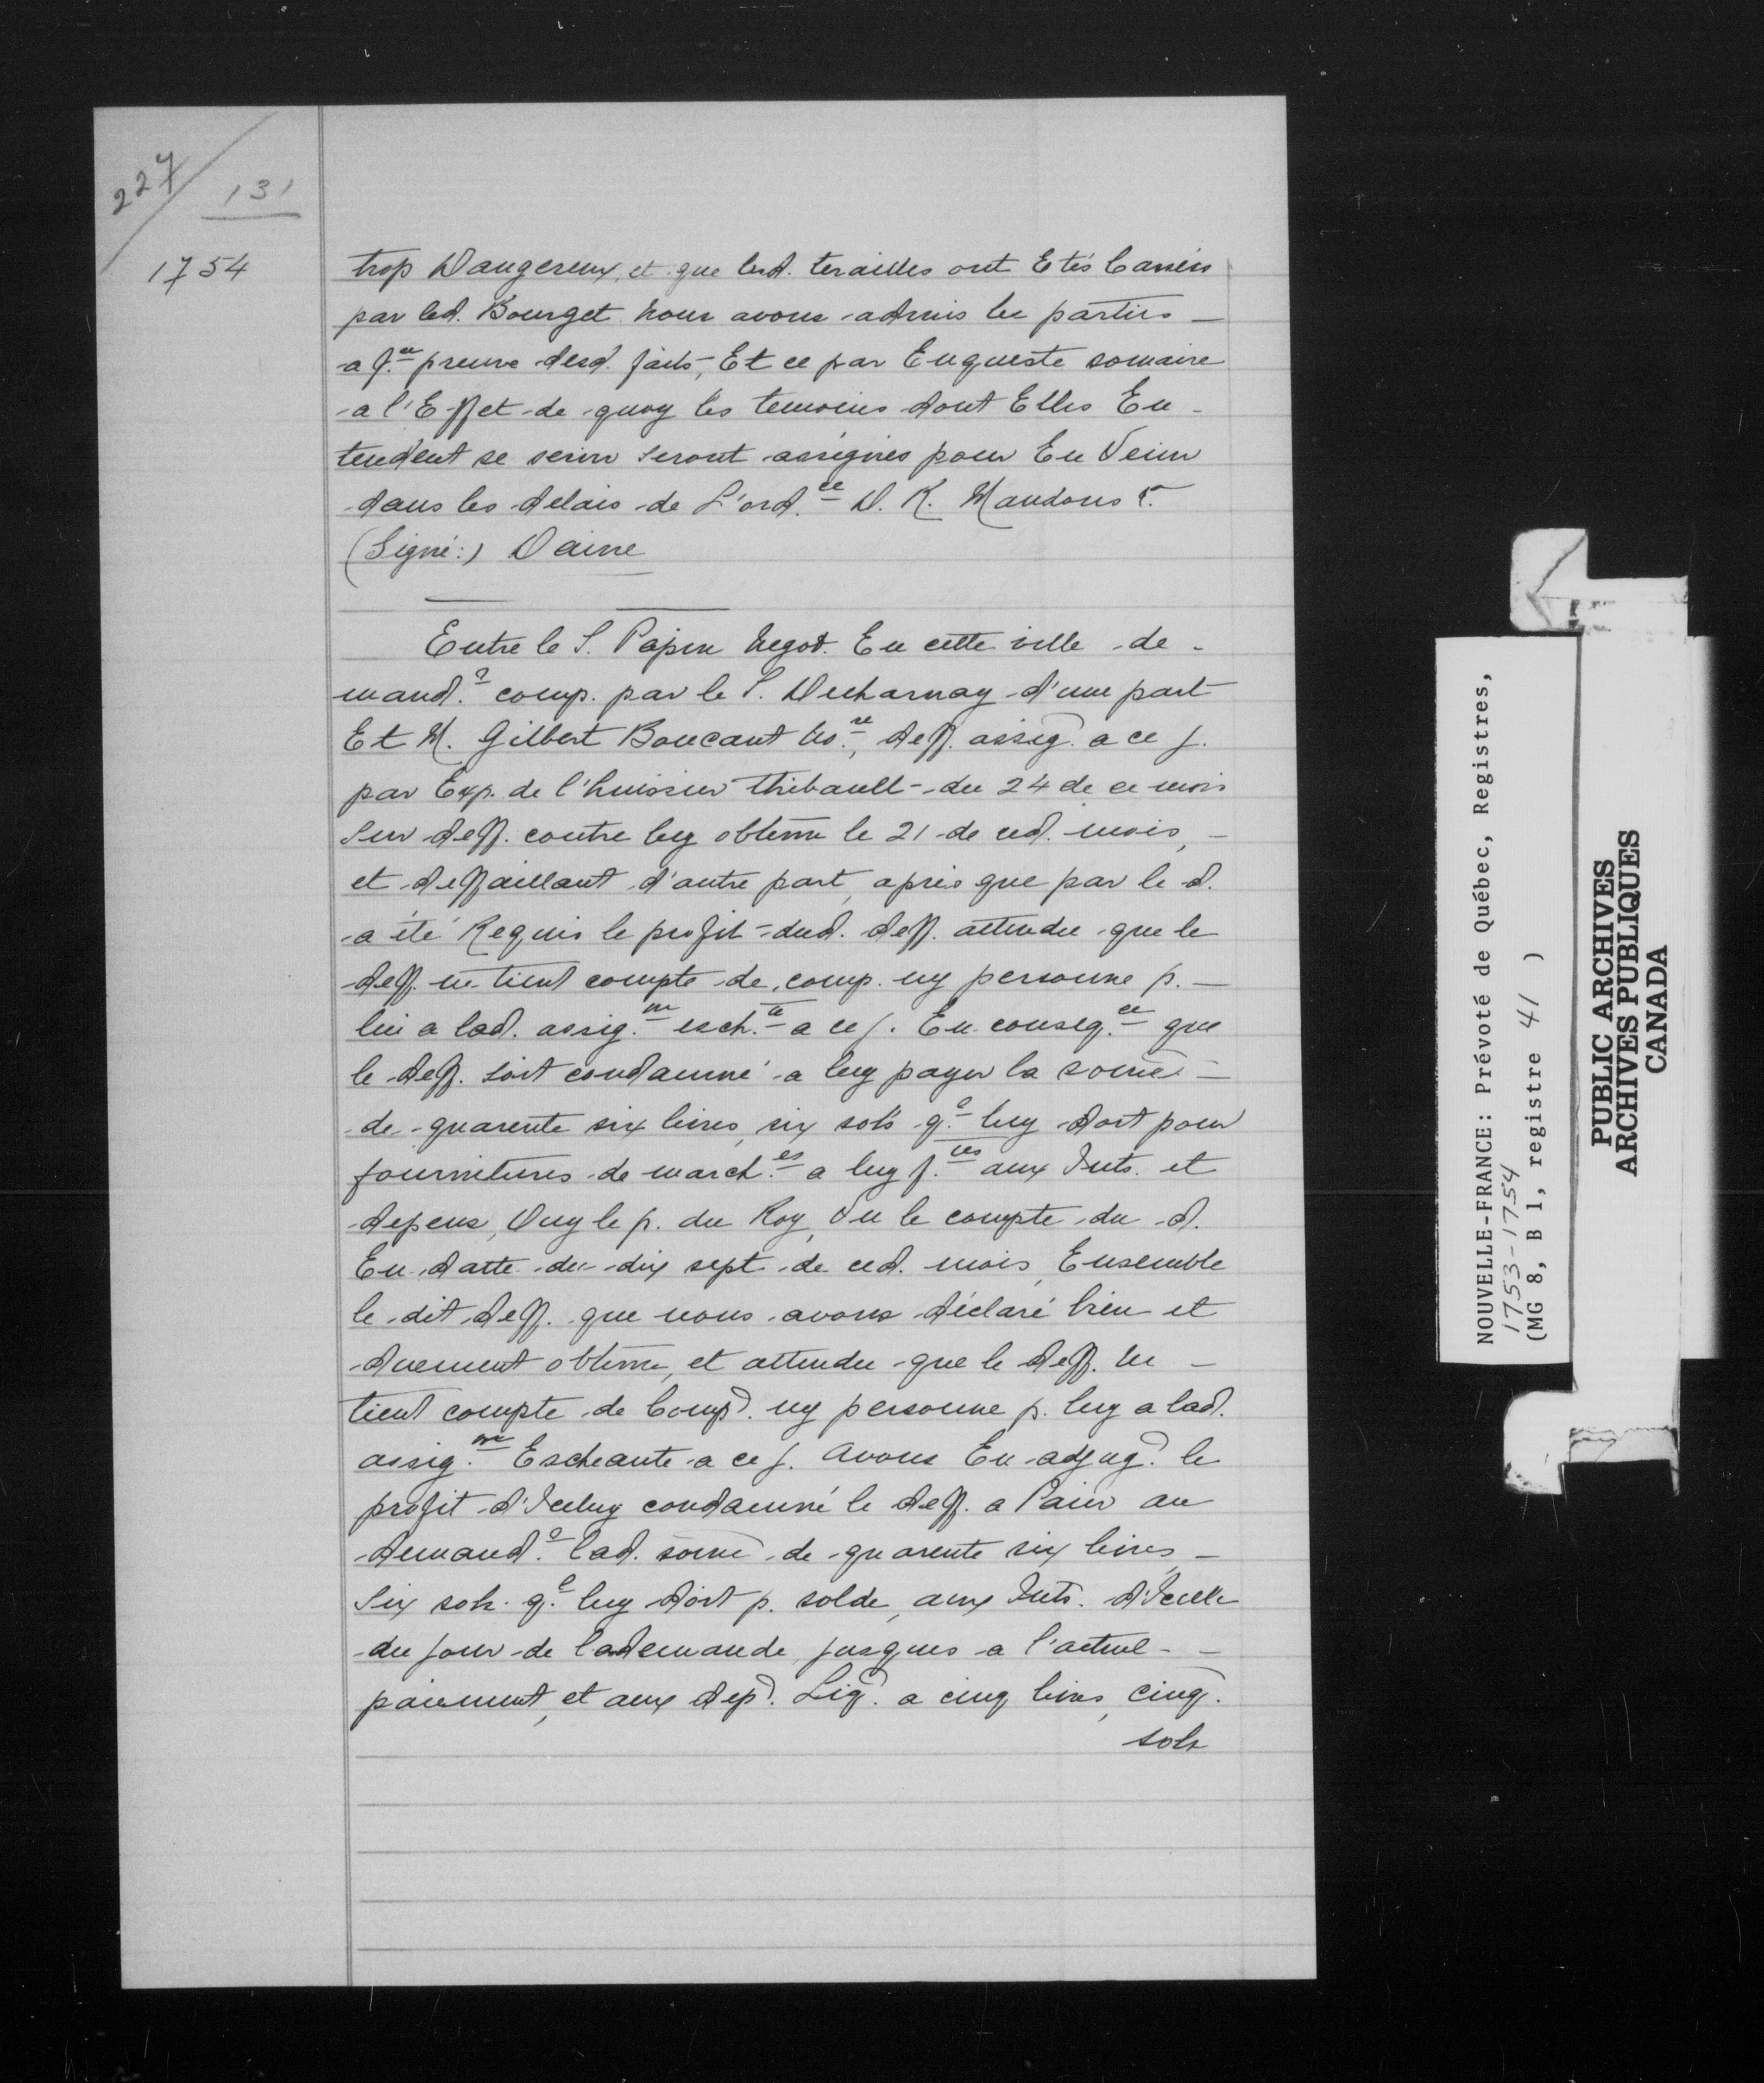 227
131
1754
trop Dangereux, et que lesd. terailles ont Etés Cassées
par led. Bourget nous avons admis les parties
a f.re preuve desd. faits, Et ce par Enqueste somaire
a l'Effet de quoy les temoins dont Elles En-
tendent se servir seront assignés pour En Venir
dans les delais de L'ord.ce D. K. Mandons &.
(Signé:) Daine
Entre le S. Papin Negot. En cette ville de-
mand.r comp. par le S. Decharnay d'une part
Et M. Gilbert Boucaut No.re, deff. assig. a ce j.
par Exp. de l'huissier thibault du 24 de ce mois
sur deff. contre luy obtenu le 21 de ced. mois,
et deffaillant d'autre part, après que par le d.
a été Requis le profit dud. deff. attendu que le
deff. ne tient compte de comp. ny personne p.
lui a lad. assig.on esch.te a ce j. En conseq.ce que
le deff. soit condamné a luy payer la somē
de quarente six livres, six sols q.l luy doit pour
fournitures de march.es a luy f.tes aux Ints. et
depens, Ouy le p. du Roy, Vu le compte du d.
En datte du dix sept de ced. mois, Ensemble
le dit deff. que nous avons déclaré bien et
duement obtenu, et attendu que le deff. ne
tient compte de Comp. ny personne p. luy a lad.
assig.on Escheante a ce j. avons En adjug. le
profit d'Iceluy condamné le deff. a Paier au
demand.r lad. somē de quarente six livres
Six sols q.l luy doit p. solde, aux Ints. d'Icelle
du jour de la demande jusques a l'actuel
paiement, et aux dep. Liq. a cinq livres, cinq.
sols
NOUVELLE-FRANCE: Prévoté de Québec, Registres,
1753-1754
(MG 8, B 1, registre 41 )
PUBLIC ARCHIVES
ARCHIVES PUBLIQUES
CANADA